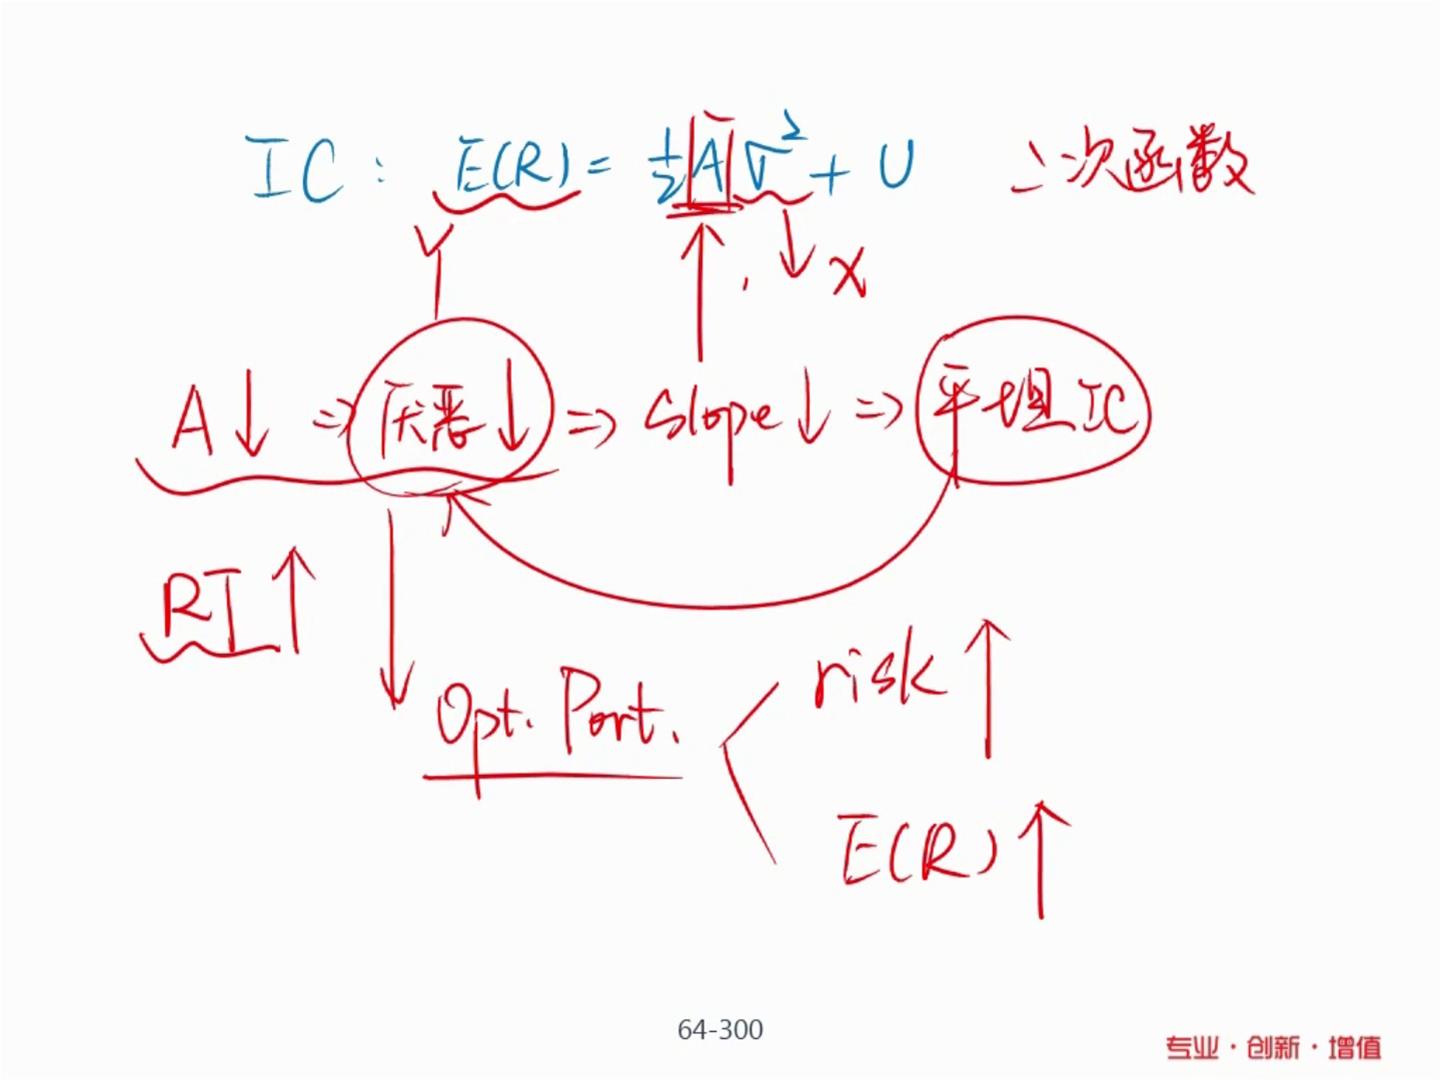 IC: E(R) = ½Aσ² + U 二次函数
Y
X
A↓ ⇒ 厌恶↓ ⇒ Slope↓ ⇒ 平坦IC
RT↑
Opt. Port.
risk↑
E(R)↑
64-300
专业·创新·增值